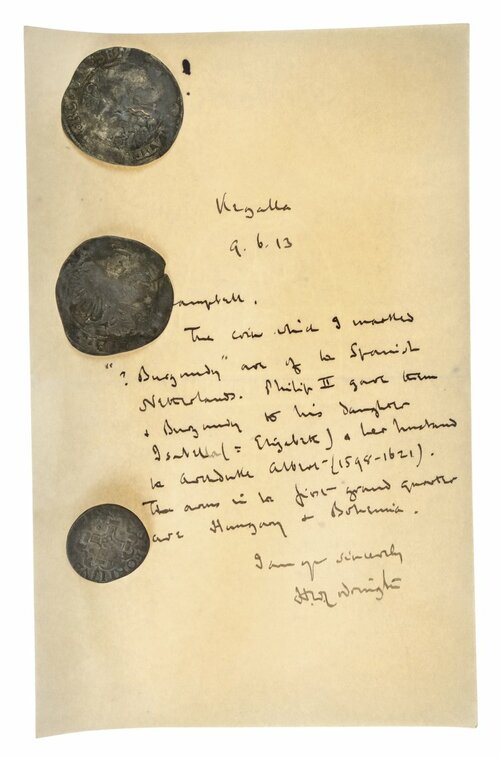 Kegalla
9. 6. 13
ampbell.
The coins which I marked
"? Burgundy" are of the Spanish
Netherlands. Philip II gave them
& Burgundy to his daughter
Isabella (= Elizabeth) & her husband
the Archduke Albert (1598-1621).
The arms in the first grand quarter
are Hungary & Bohemia.
I am yrs sincerely